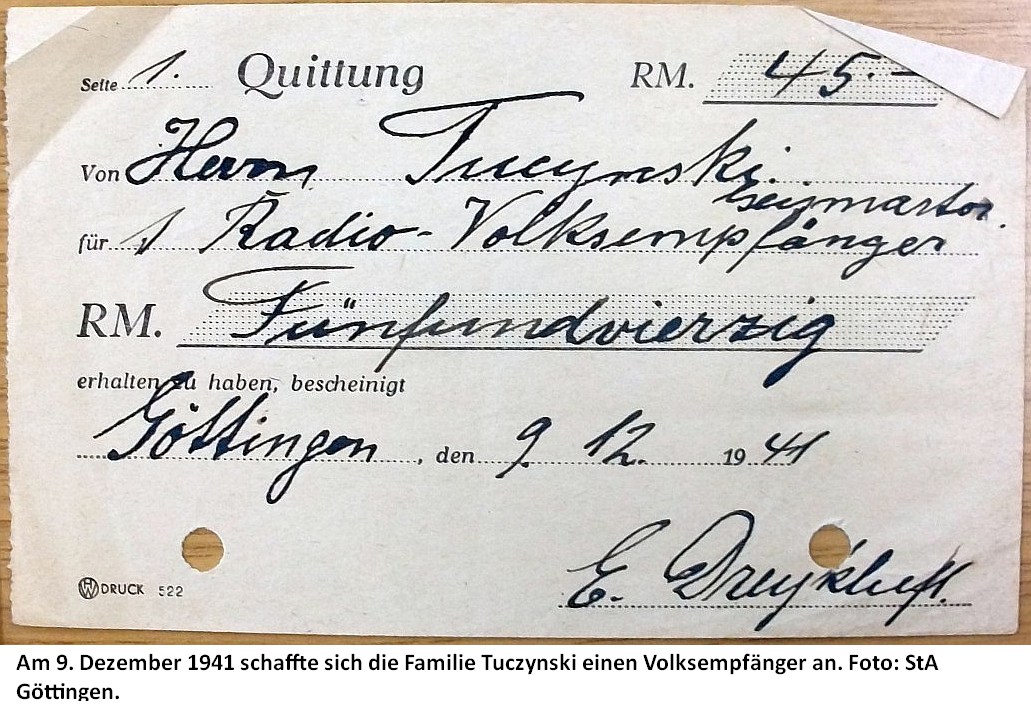 Seite 1. Quittung RM. 45.-
Von Herrn Tucynski.
für 1 Radio-Volksempfänger
RM. Fünfundvierzig
erhalten zu haben, bescheinigt
Göttingen, den 9. 12. 1941
E.
HW DRUCK 522
Am 9. Dezember 1941 schaffte sich die Familie Tuczynski einen Volksempfänger an. Foto: StA
Göttingen.